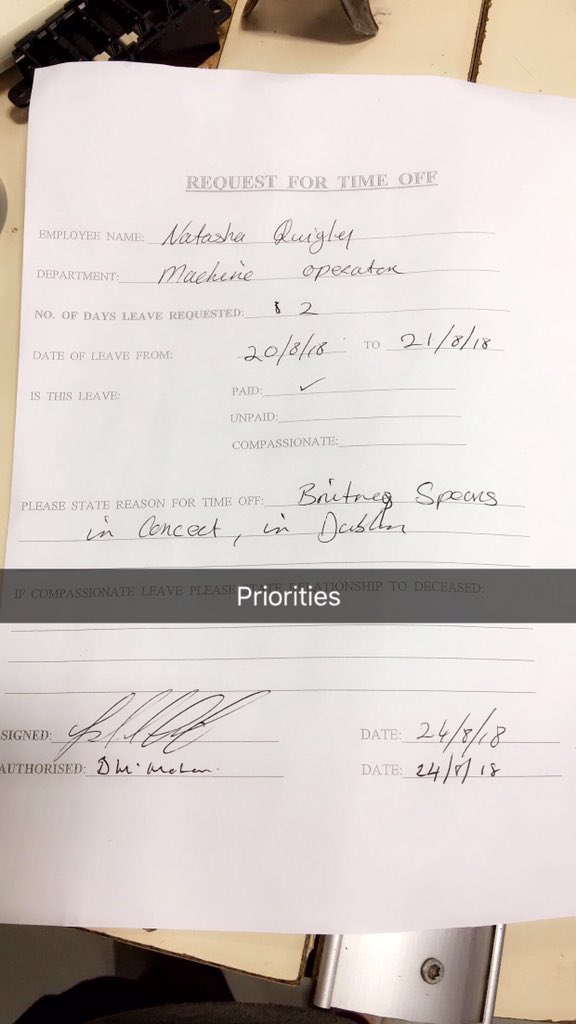 REQUEST FOR TIME OFF
EMPLOYEE NAME: Natasha Quigley
DEPARTMENT: Machine operator
NO. OF DAYS LEAVE REQUESTED: 2
DATE OF LEAVE FROM: 20/8/18 TO 21/8/18
IS THIS LEAVE: PAID: ✓
UNPAID:
COMPASSIONATE:
PLEASE STATE REASON FOR TIME OFF: Britney Spears
in Concert, in Dublin
IF COMPASSIONATE LEAVE PLEASE STATE RELATIONSHIP TO DECEASED:
Priorities
SIGNED: DATE: 24/8/18
AUTHORISED: DATE: 24/8/18